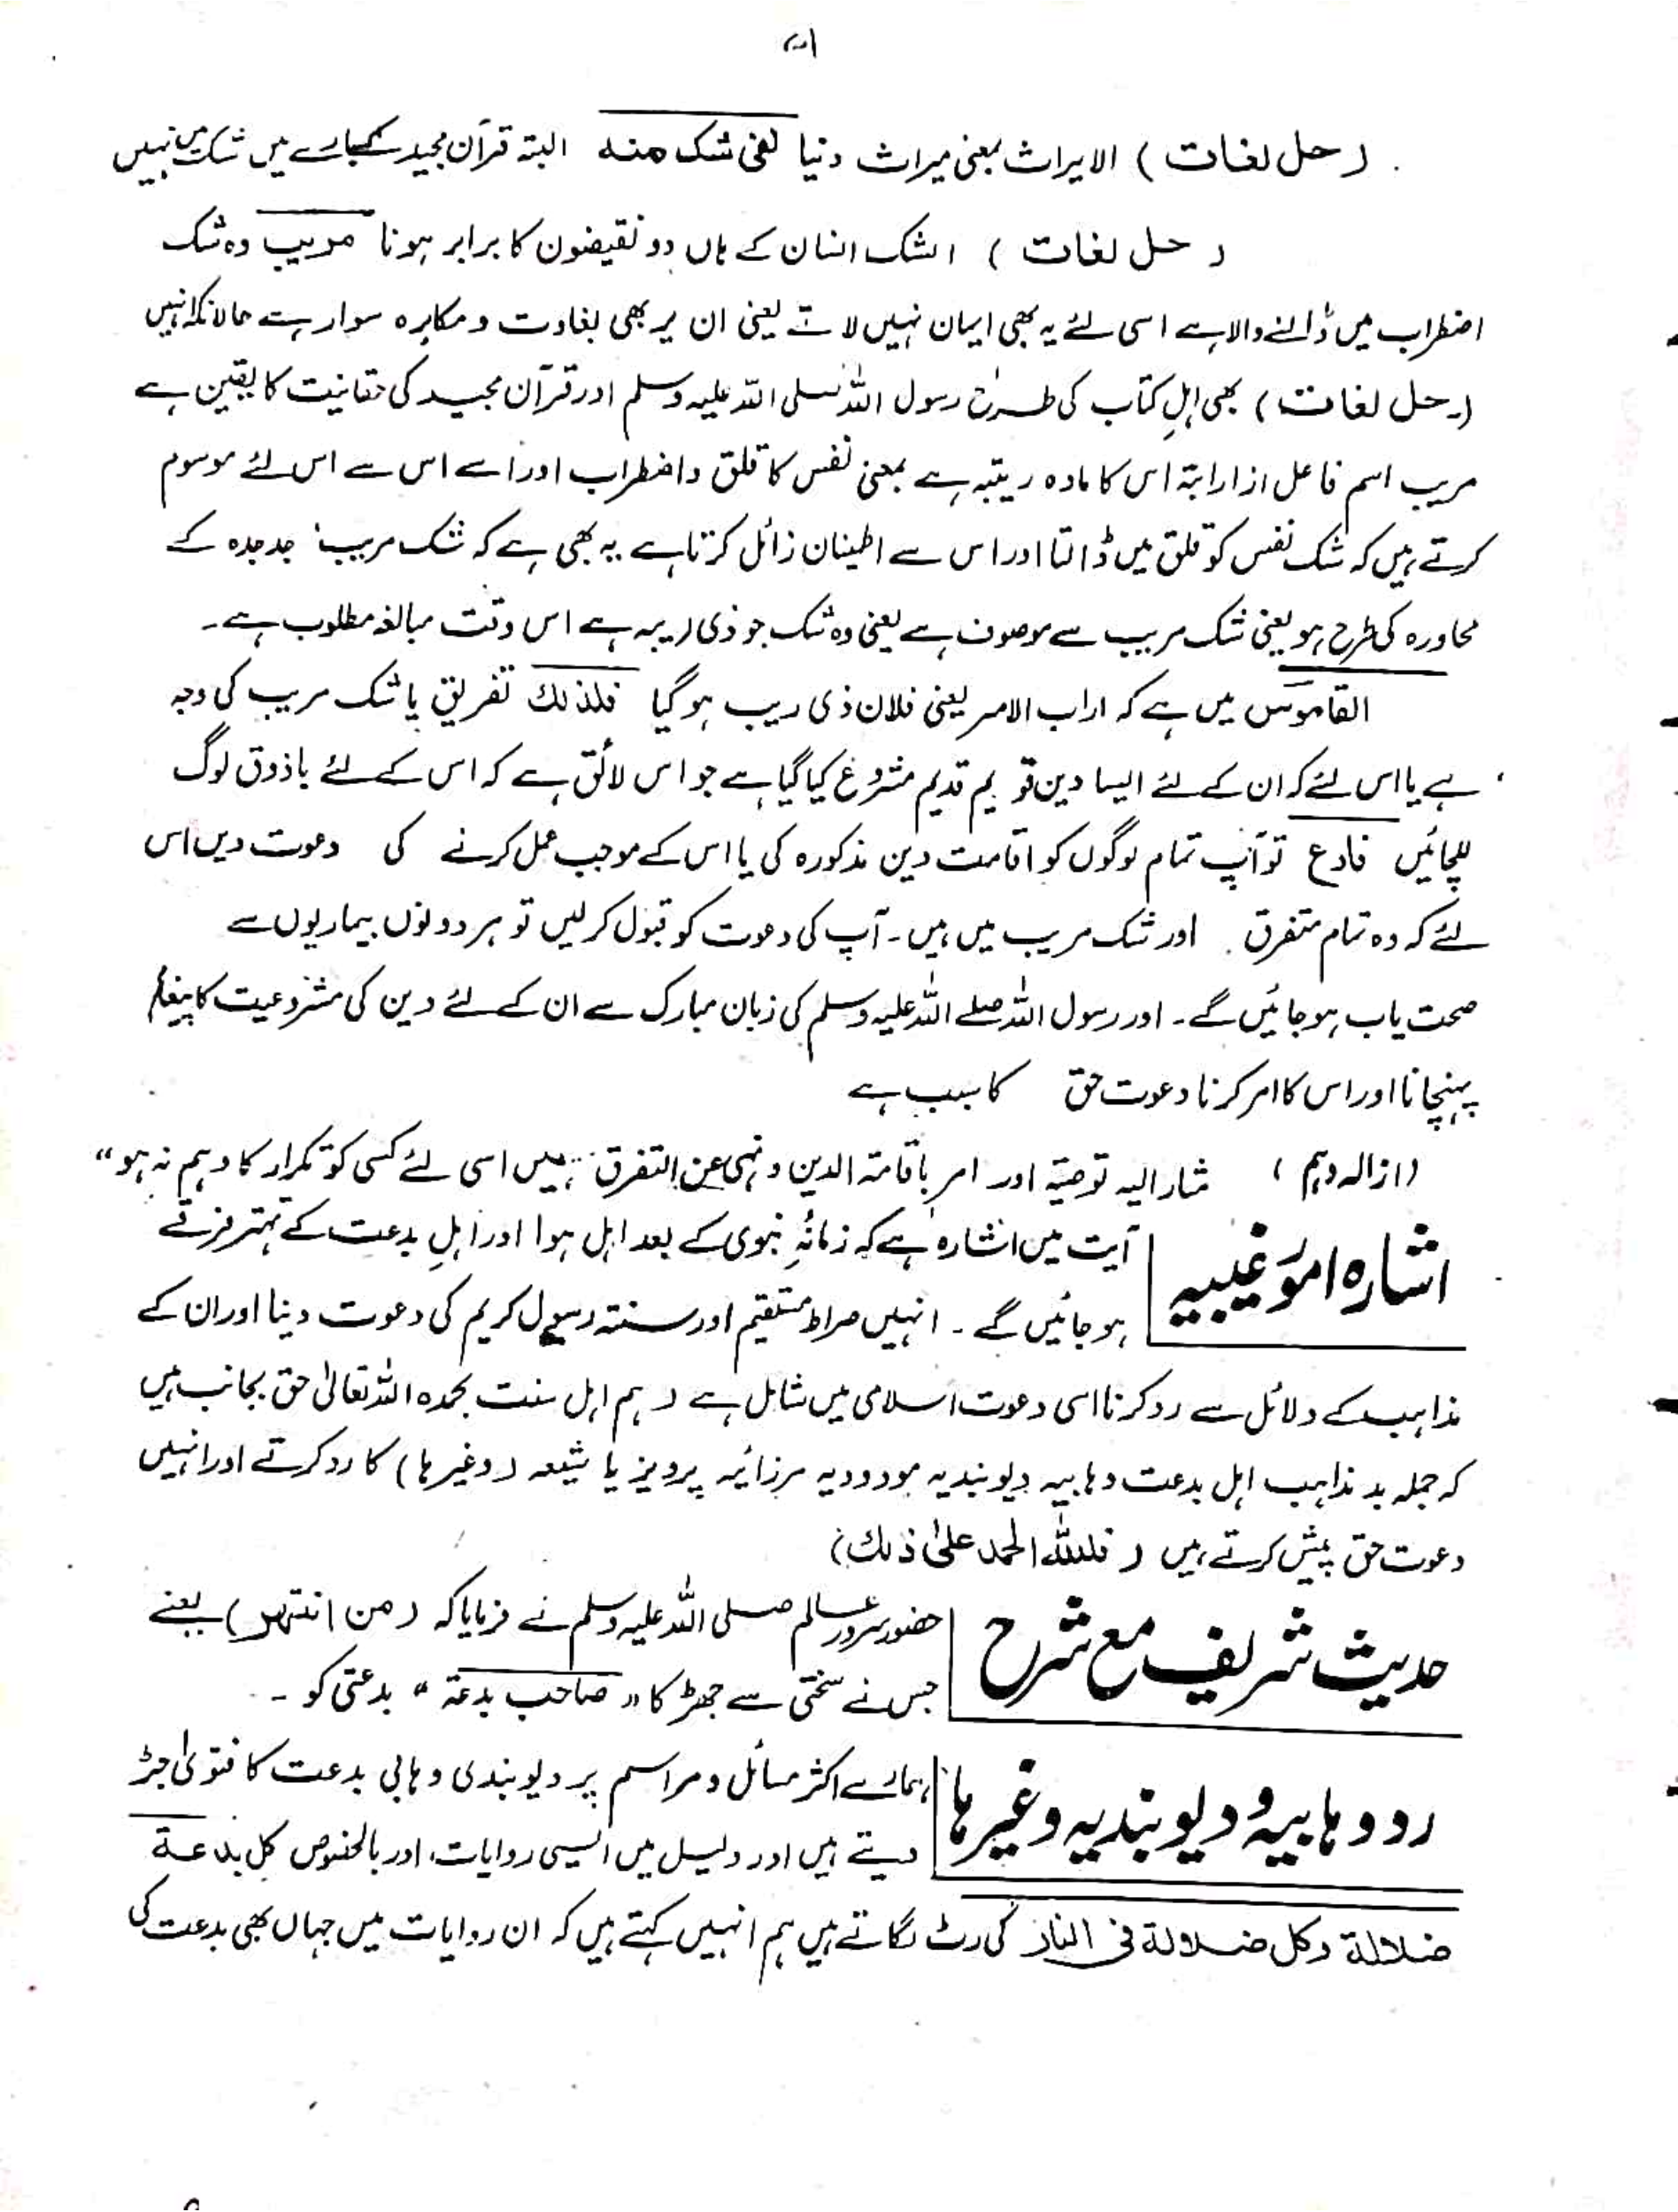 (حل لغات) الایراث بمعنی میراث دنیا لفی شک منه البتہ قرآن مجید کے بارے میں شک میں نہیں
(حل لغات) الشک انسان کے ہاں دو نقیضوں کا برابر ہونا مریب وہ شک
اضطراب میں ڈالنے والا ہے اسی لئے یہ بھی ایمان نہیں لاتے یعنی ان پر بھی بغاوت و مکابرہ سوار ہے حالانکہ انہیں
(حل لغات) بھی اہلِ کتاب کی طرح رسول اللہ صلی اللہ علیہ وسلم اور قرآن مجید کی حقانیت کا یقین ہے
مریب اسم فاعل از ارابتہ اس کا مادہ ریتبہ ہے بمعنی نفس کا قلق و اضطراب اور اسے اس سے اس لئے موسوم
کرتے ہیں کہ شک نفس کو قلق میں ڈالتا اور اس سے اطینان زائل کرتا ہے یہ بھی ہے کہ شک مریب جد جدہ کے
محاورہ کی طرح ہو یعنی شک مریب سے موصوف ہے یعنی وہ شک جو ذی ریبہ ہے اس وقت مبالغہ مطلوب ہے۔
القاموس میں ہے کہ اراب الامر یعنی فلان ذی ریب ہو گیا فلذلك تفریق یا شک مریب کی وجہ
ہے یا اس لئے کہ ان کے لئے ایسا دین قویم قدیم مشروع کیا گیا ہے جو اس لائق ہے کہ اس کے لئے باذوق لوگ
للچائیں فادع تو آپ تمام لوگوں کو اقامت دین مذکورہ کی یا اس کے موجب عمل کرنے کی دعوت دیں اس
لئے کہ وہ تمام متفرق اور شک مریب میں ہیں۔ آپ کی دعوت کو قبول کر لیں تو ہر دونوں بیماریوں سے
صحت یاب ہو جائیں گے۔ اور رسول اللہ صلے اللہ علیہ وسلم کی زبان مبارک سے ان کے لئے دین کی مشروعیت کا پیغام
پہنچانا اور اس کا امر کرنا دعوت حق کا سبب ہے
(ازالہ وہم) مشار الیہ توصیۃ اور امر باقامۃ الدین و نہی عن التفرق ہیں اسی لئے کسی کو تکرار کا وہم نہ ہو“
اشارہ امور غیبیہ
آیت میں اشارہ ہے کہ زمانۂِ نبوی کے بعد اہل ہوا اور اہلِ بدعت کے بہتر فرقے
ہو جائیں گے۔ انہیں صراط مستقیم اور سنتہ رسول کریم کی دعوت دینا اور ان کے
مذاہب کے دلائل سے رد کرنا اسی دعوت اسلامی میں شامل ہے (ہم اہل سنت بحمدہ اللہ تعالیٰ حق بجانب ہیں
کہ جملہ بد مذاہب اہل بدعت وہابیہ دیوبندیہ مودودیہ مرزائیہ پرویز یا شیعہ (وغیرہا) کا رد کرتے اور انہیں
دعوت حق پیش کرتے ہیں (فللہ الحمد علیٰ ذلك)
حدیث شریف مع شرح
حضور سرور عالم صلی اللہ علیہ وسلم نے فرمایا کہ (من انتہر) یعنے
جس نے سختی سے جھڑکا " صاحب بدعۃ " بدعتی کو ۔
رد وہابیہ و دیوبندیہ وغیرہا
ہمارے اکثر مسائل و مراسم پر دیوبندی وہابی بدعت کا فتویٰ جڑ
دیتے ہیں اور دلیل میں ایسی روایات، اور بالخصوص کل بدعة
ضلالة وكل ضلالة فی النار کی رٹ لگاتے ہیں ہم انہیں کہتے ہیں کہ ان روایات میں جہاں بھی بدعت کی